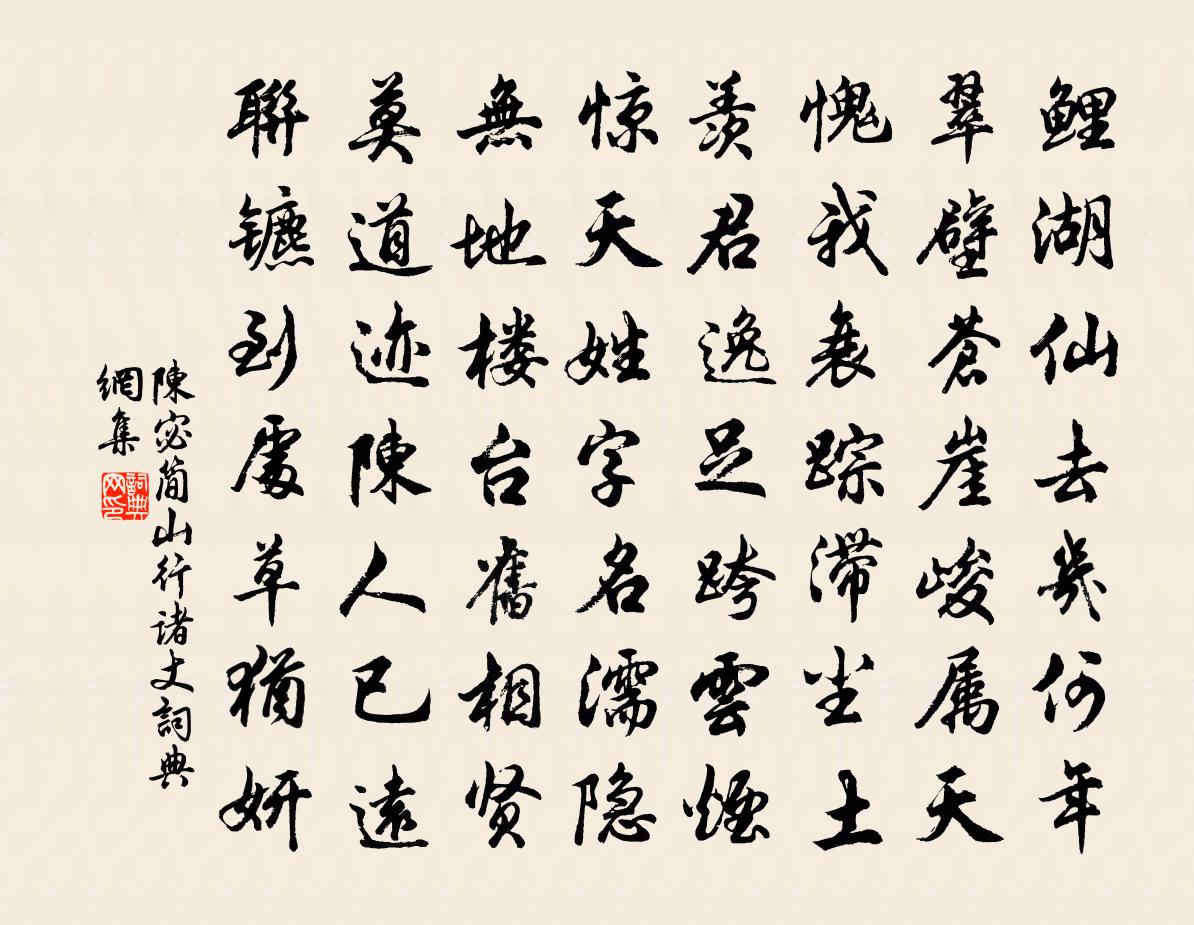 鲤湖仙去幾何年
翠壁蒼崖峻属天
愧我衰踪滞尘土
羨君逸足跨雲煙
惊天姓字名濡隐
無地楼台舊相贤
莫道迹陳人已遠
聯镳到處草猶妍
陳宓简山行诸丈詞典
網集
詞典
网印